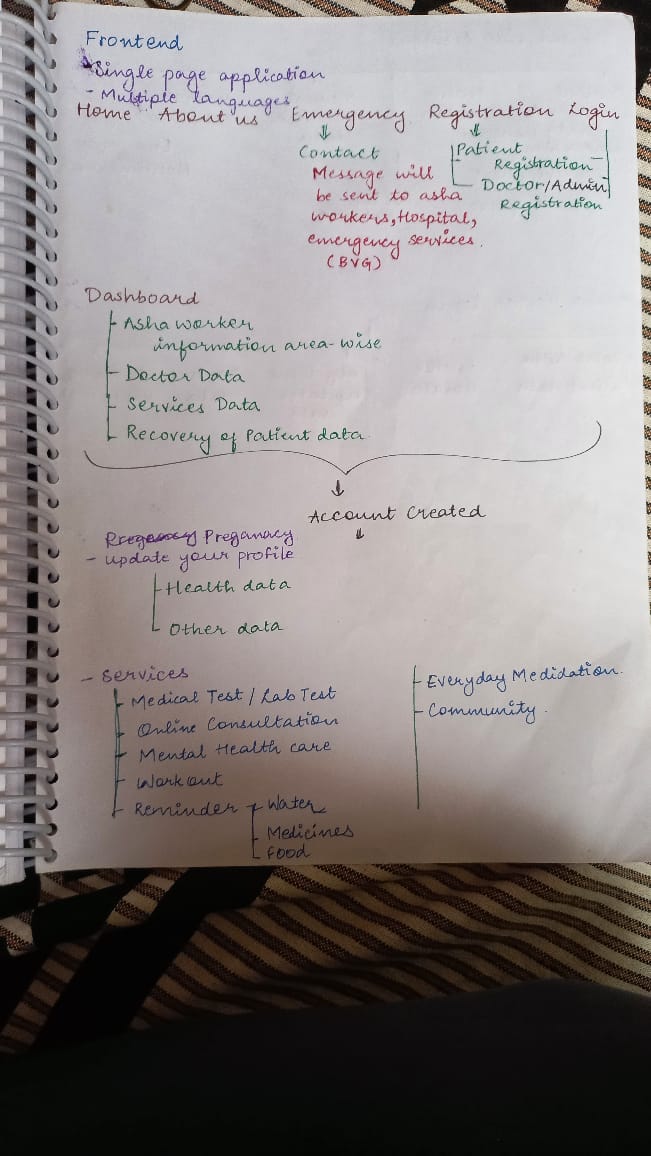 Frontend
Single page application
- Multiple languages
Home About us Emergency Registration Login
Contact
Message will
be sent to asha
workers, Hospital,
emergency services.
(BVG)
Patient
Registration
Doctor/Admin
Registration
Dashboard
Asha worker
information area-wise
Doctor Data
Services Data
Recovery of Patient data.
Account Created
Preganacy
- update your profile
Health data
Other data
- Services
Medical Test / Lab Test
Online Consultation
Mental Health care
Workout
Reminder - Water
Medicines
Food
Everyday Medidation.
Community.